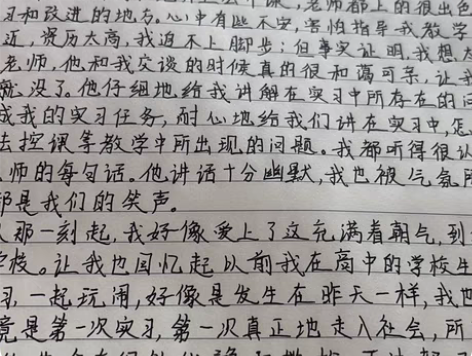 课，老师都上的很出色
习和改进的地方。心中有些不安，害怕指导我教学
近，资历太高，我追不上脚步；但事实证明，我想
老师，他和我交谈的时候真的很和蔼可亲，让
就没了。他仔细地给我讲解在实习中所存在的
成我的实习任务，耐心地给我们讲在实习中，怎
去控课等教学中所出现的问题。我都听得很认
师的每句话。他讲话十分幽默，我也被气氛
都是我们的笑声。
那一刻起，我好像爱上了这充满着朝气，到
学校。让我也回忆起以前我在高中的学校生
习，一起玩闹，好像是发生在昨天一样，我也
竟是第一次实习，第一次真正地走入社会，所